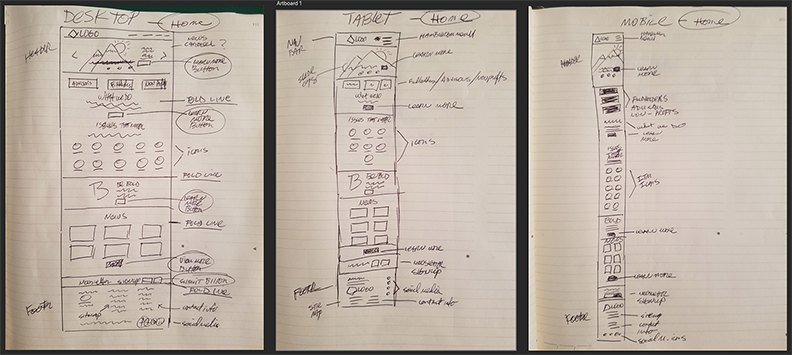 Artboard 1
DESKTOP - Home
HEADER
LOGO
NEWS
CAROUSEL ?
LEARN MORE
BUTTON
FOLD LINE
WHAT WE DO
LEARN
MORE
BUTTON
ISSUES THAT MATTER
icons
FOLD LINE
BE BOLD
LEARN
MORE
BUTTON
NEWS
FOLD LINE
VIEW MORE
BUTTON
SUBMIT BUTTON
FOLD LINE
FOOTER
sitemap
contact info
social media
TABLET - Home
NAV
BAR
LOGO
HAMBURGER MENU
LEARN MORE
WHAT WE DO
LEARN MORE
ISSUES THAT MATTER
icons
BE BOLD
NEWS
LEARN MORE
NEWSLETTER
SIGNUP
FOOTER
LOGO
social media
SITE
MAP
contact info
MOBILE - Home
HEADER
LOGO
HAMBURGER
MENU
LEARN
MORE
ADVISORS
NON-PROFITS
WHAT WE DO
LEARN
MORE
ISSUES
BOLD
LEARN MORE
NEWS
LEARN MORE
NEWSLETTER
SIGNUP
LOGO
FOOTER
sitemap
contact
info
social M. icons